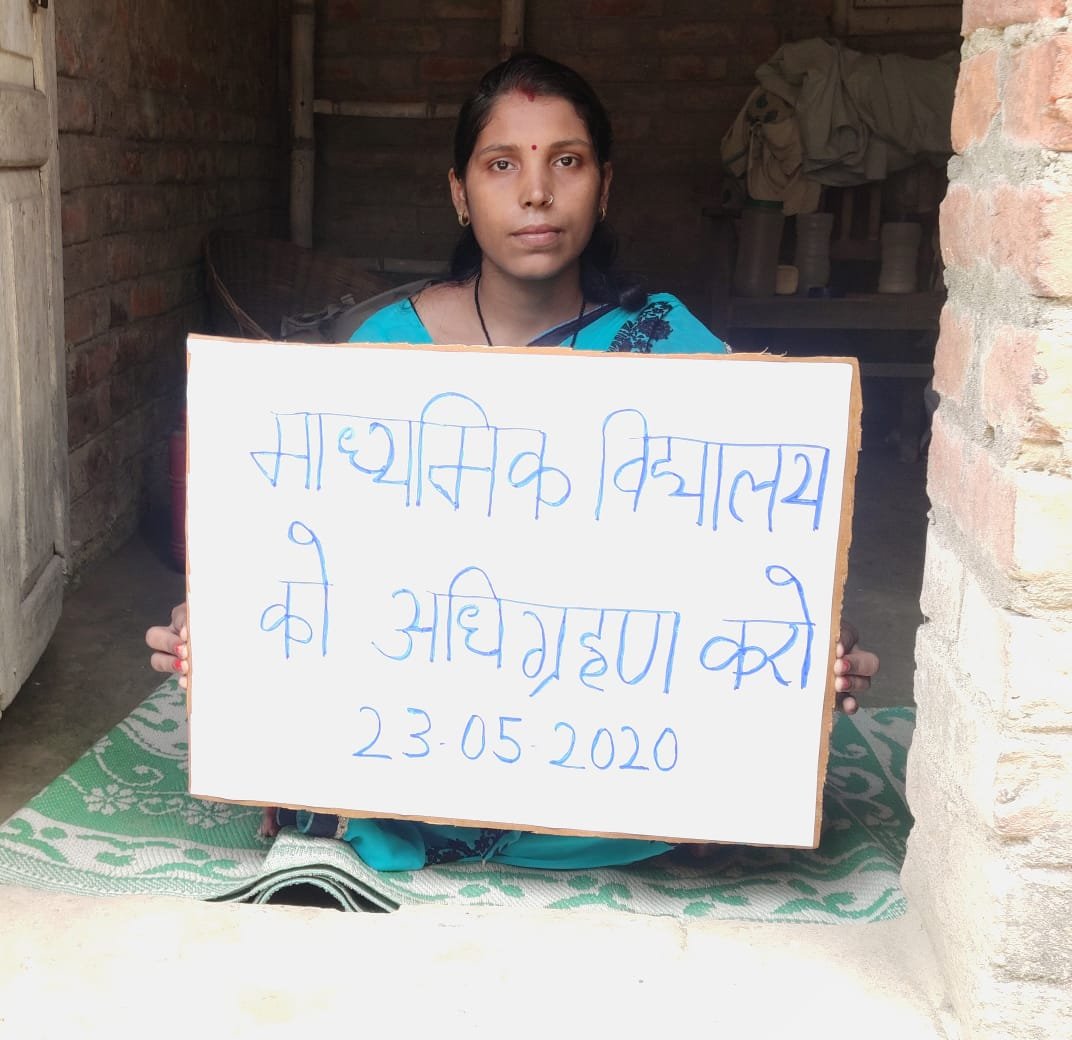 माध्यमिक विद्यालय
को अधिग्रहण करो
23.05.2020